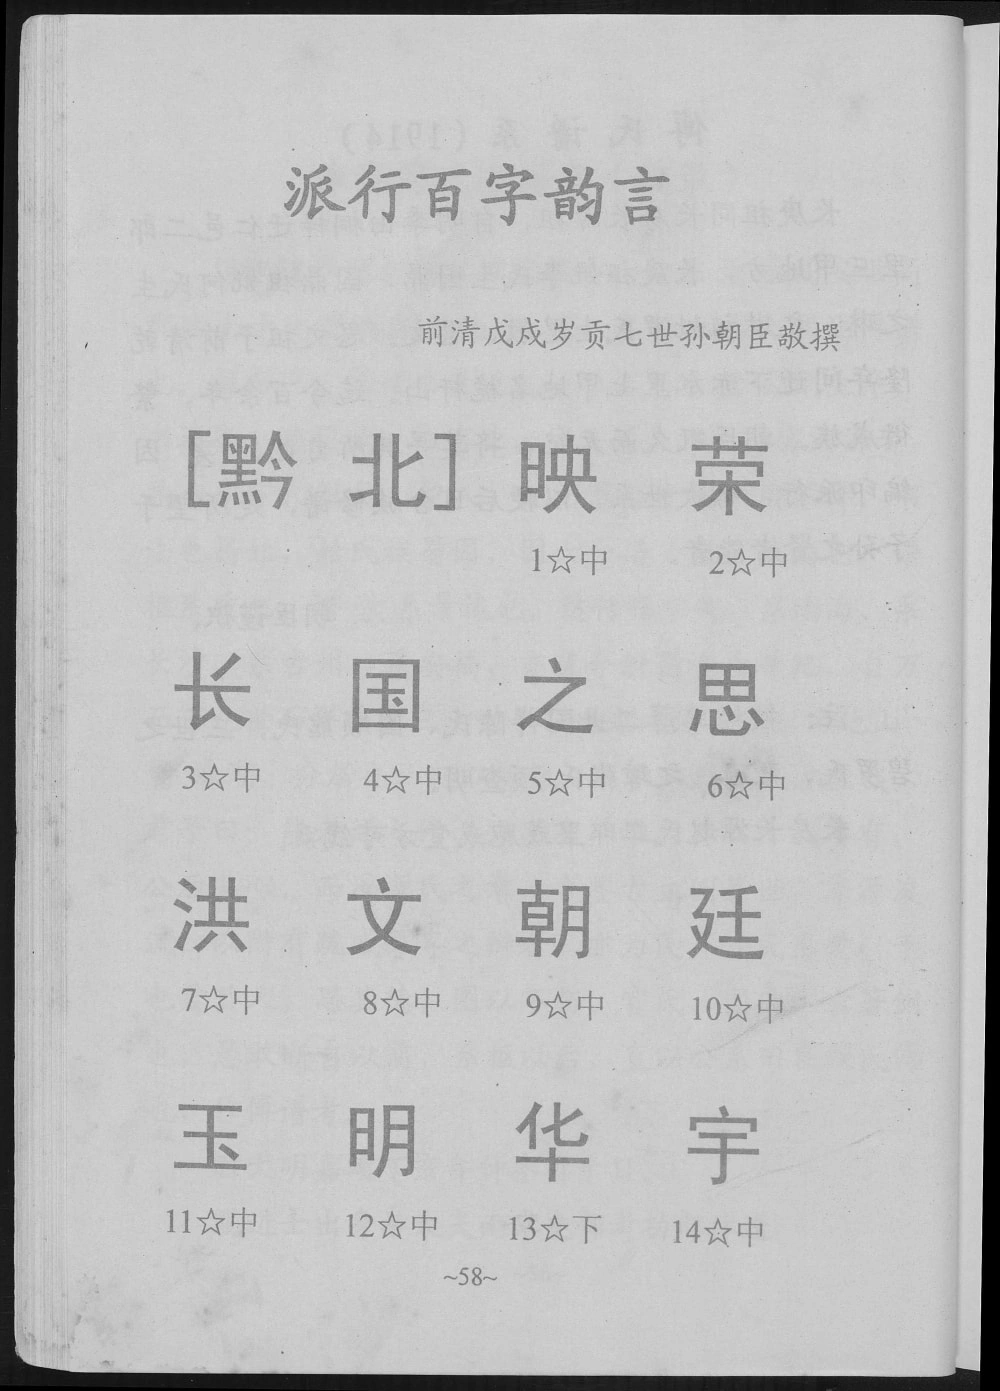 派行百字韵言
前清戊戍岁贡七世孙朝臣敬撰
[黔 北] 映 荣
1☆中 2☆中
长 国 之 思
3☆中 4☆中 5☆中 6☆中
洪 文 朝 廷
7☆中 8☆中 9☆中 10☆中
玉 明 华 宇
11☆中 12☆中 13☆下 14☆中
~58~